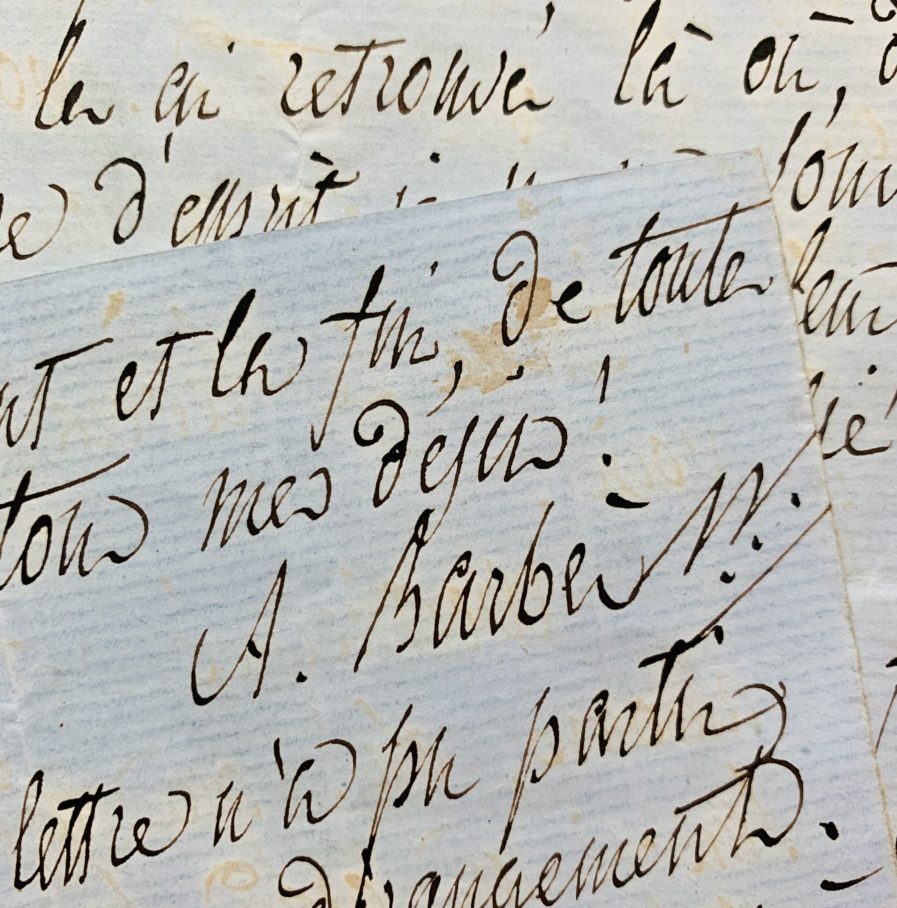 la ai retrouvé là où,
d'esprit
et la fin, de toutes
tous mes désirs!
A. Barbès
lettre n'a pu partir
dérangement.